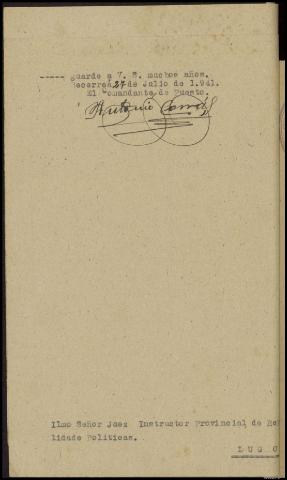 ----- guarde a V. S. muchos años.
Becerrea 27 de Julio de 1.941.
El Comandante de Puesto.
Antonio
Ilmo Señor Juez Instructor Provincial de Re
lidade Politicas.
L U G O